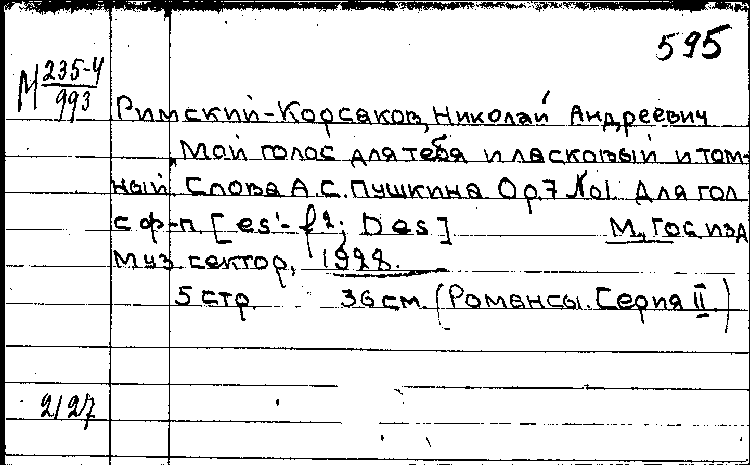 595
М 235-4
993
Римский-Корсаков, Николай Андреевич
Мой голос для тебя и ласковый и том-
ный. Слова А.С. Пушкина Op.7 №1. Для гол.
с ф-п. [es'-f2; Des] М., Гос. изд
муз. сектор, 1928.
5 стр. 36 см. (Романсы. Серия II)
2127